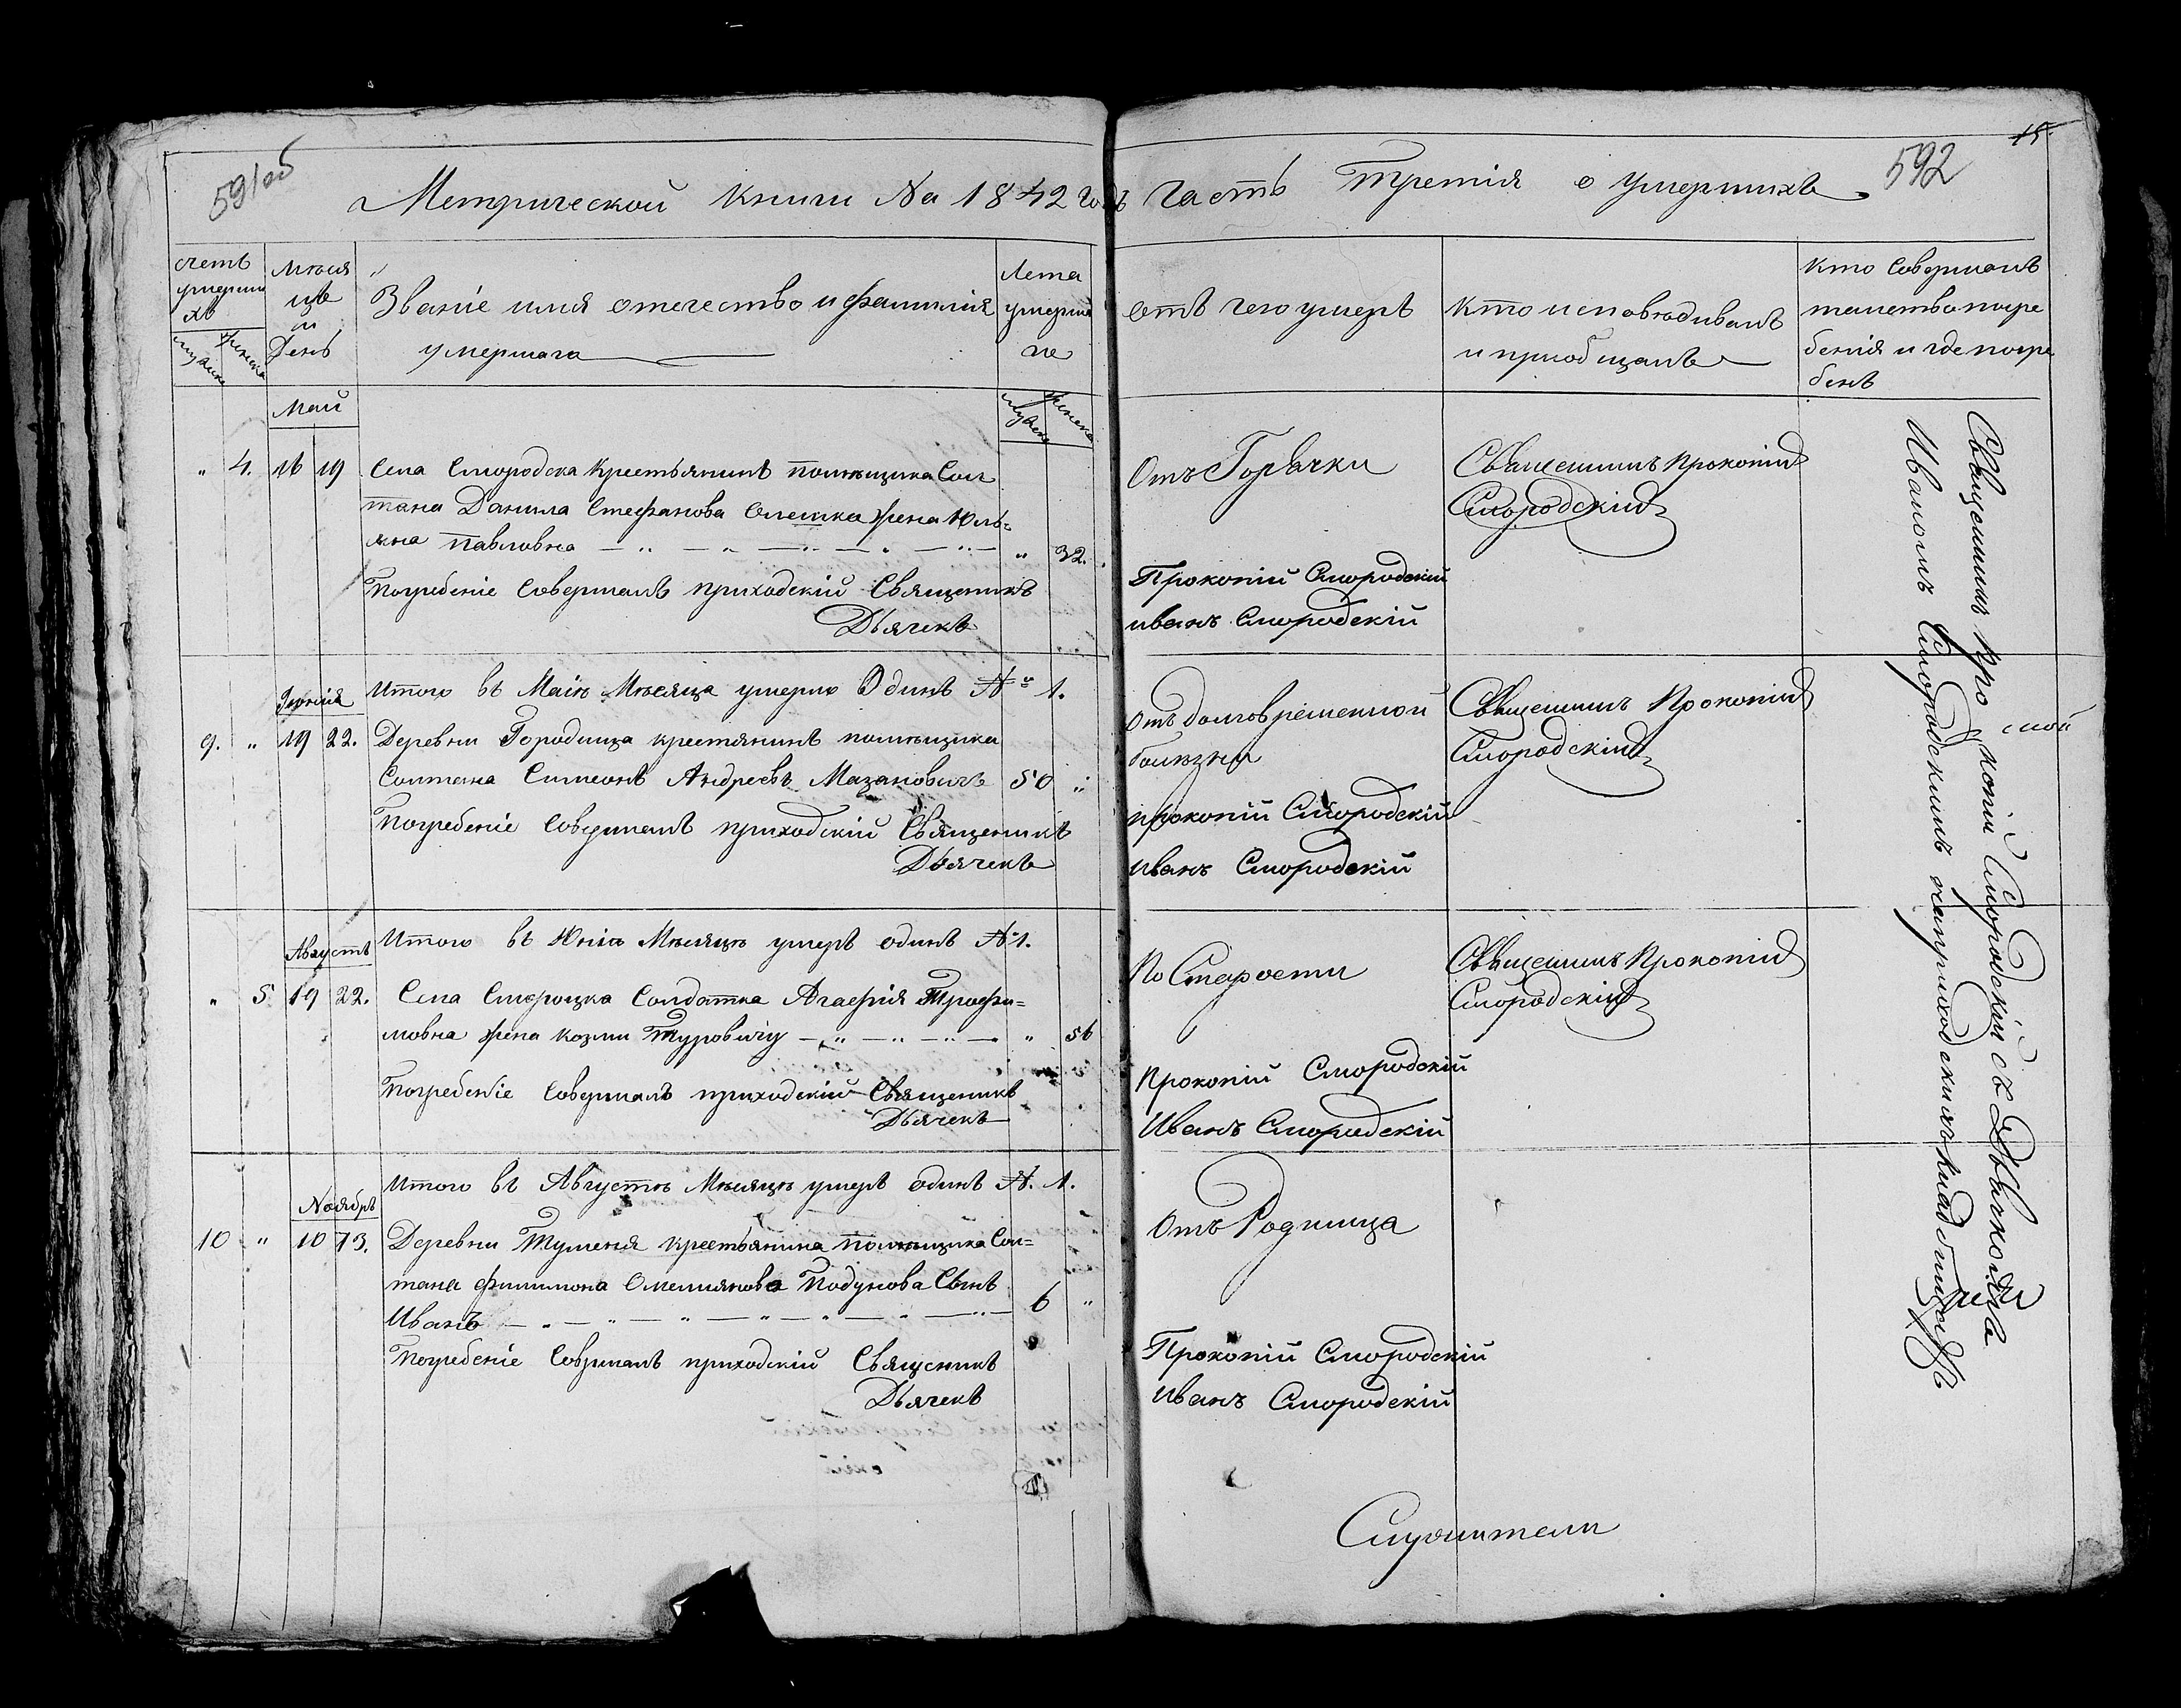 591об
592
15.
Метрической Книги На 1842 годъ Часть Третія о умершихъ
счетъ
умерши
хъ
мужеска
женска
месяцъ
и
День
Званіе имя отечество и фамилія
умершаго
Лета
умерша
го
мужеска
женска
отъ чего умеръ
Кто исповѣдивалъ
и приобщалъ
Кто Совершалъ
таинство погре
бенія и где погре
бенъ
Май
" 4. 16 19
Села Смородска Крестьянинъ помѣщика Сол
тана Данила Стефанова Олешка жена Юль=
яна Павловна " 32.
Отъ Горячки
Священникъ Прокопій
Смородскій
Погребеніе Совершалъ приходскій Священикъ
Дьячекъ
Прокопій Смородскій
иванъ Смородскій
Итого въ Маіѣ Мѣсяца умерло Одинъ № 1.
Іюнія
9. " 19 22.
Деревни Городища крестянинъ помѣщика
Солтана Симеонъ Андреевъ Мазановичъ 50 "
Отъ долговременной
болѣзни
Священникъ Прокопій
Смородскій
Погребеніе Совершалъ приходскій Священикъ
Дьячекъ
прокопій Смородскій
Иванъ Смородскій
Итого въ Юніѣ Мѣсяцѣ умеръ одинъ №1.
Августъ
" 5. 19 22.
Села Смороцка Солдатка Агафія Трофи=
мовна жена Козми Туровичу " 56
По Старости
Священникъ Прокопій
Смородскій
Погребеніе Совершалъ приходскій Священикъ
Дьячекъ
Прокопій Смородскій
Иванъ Смородскій
Итого въ Августѣ Мѣсяцѣ умеръ одинъ №. 1.
Ноябръ
10 " 10 13.
Деревни Туменя крестьянина помѣщика Сол=
тана Филимона Омелиянова Подунова Сынъ
Иванъ 6 "
Отъ Родимца
Погребеніе Соврпалъ приходскій Священикъ
Дьячекъ
Прокопій Смородскій
Иванъ Смородскій
Служители
Священникъ Прокопій Смородскій съ Дьячкомъ
Иваномъ Смородскимъ на приходскихъ кладбищахъ